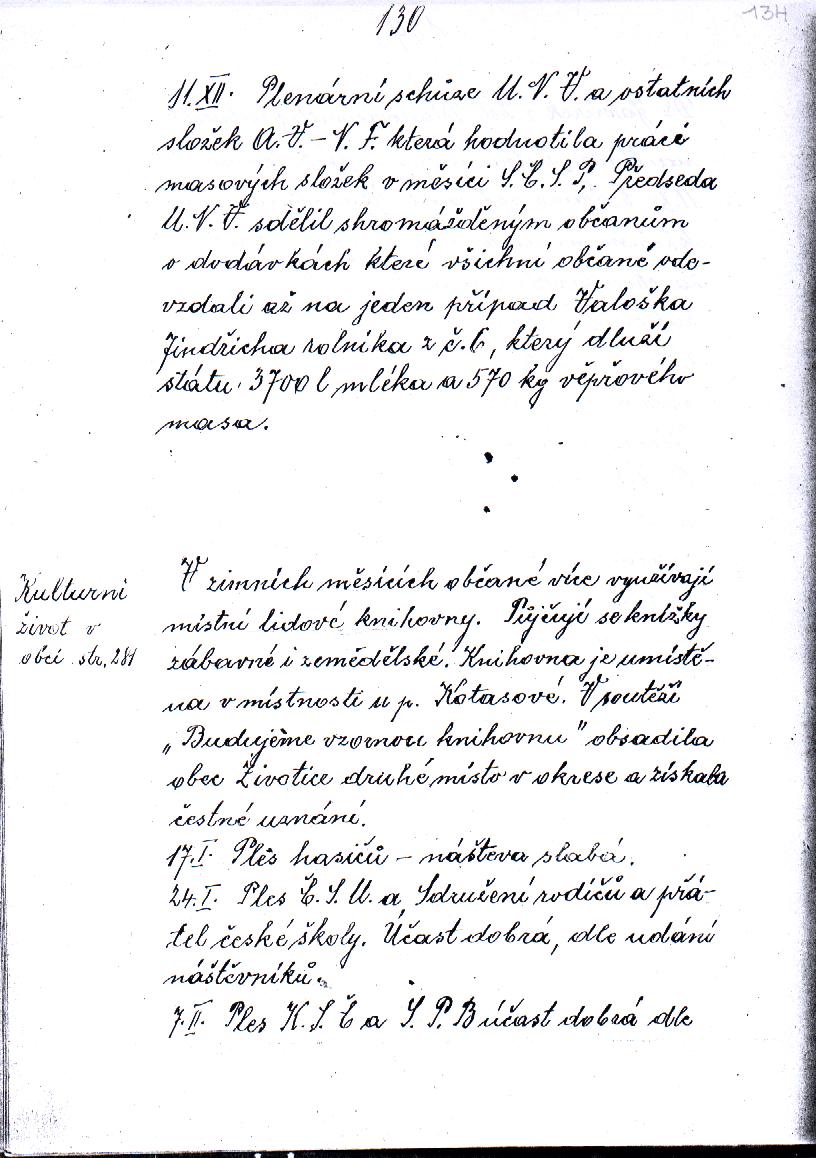 130
134
11.XII. Plenární schůze M. N. V. a ostatních
složek A. V. – N. F. která hodnotila práci
masových složek v měsíci S. Č. S. P, Předseda
M. N. V. sdělil shromážděným občanům
o dodávkách které všichni občané ode-
vzdali až na jeden případ Valoška
Jindřicha rolníka z č. 6, který dluží
státu 3700 l mléka a 570 kg věpřového
masa.
Kulturní
život v
obci str. 281
V zimních měsících občané více využívají
místní lidové knihovny. Půjčují se knížky
zábavné i zemědělské. Knihovna je umístě-
na v místnosti u p. Kotasové. V soutěži
„Budujeme vzornou knihovnu" obsadila
obec Životice druhé místo v okrese a získala
čestné uznání.
17.I. Ples hasičů – náštěva slabá.
24.I. Ples Č. S. M. a Sdružení rodičů a přá-
tel české školy. Účast dobrá, dle udání
náštěvníků.
7.II. Ples K. S. Č a S. P. B účast dobrá dle